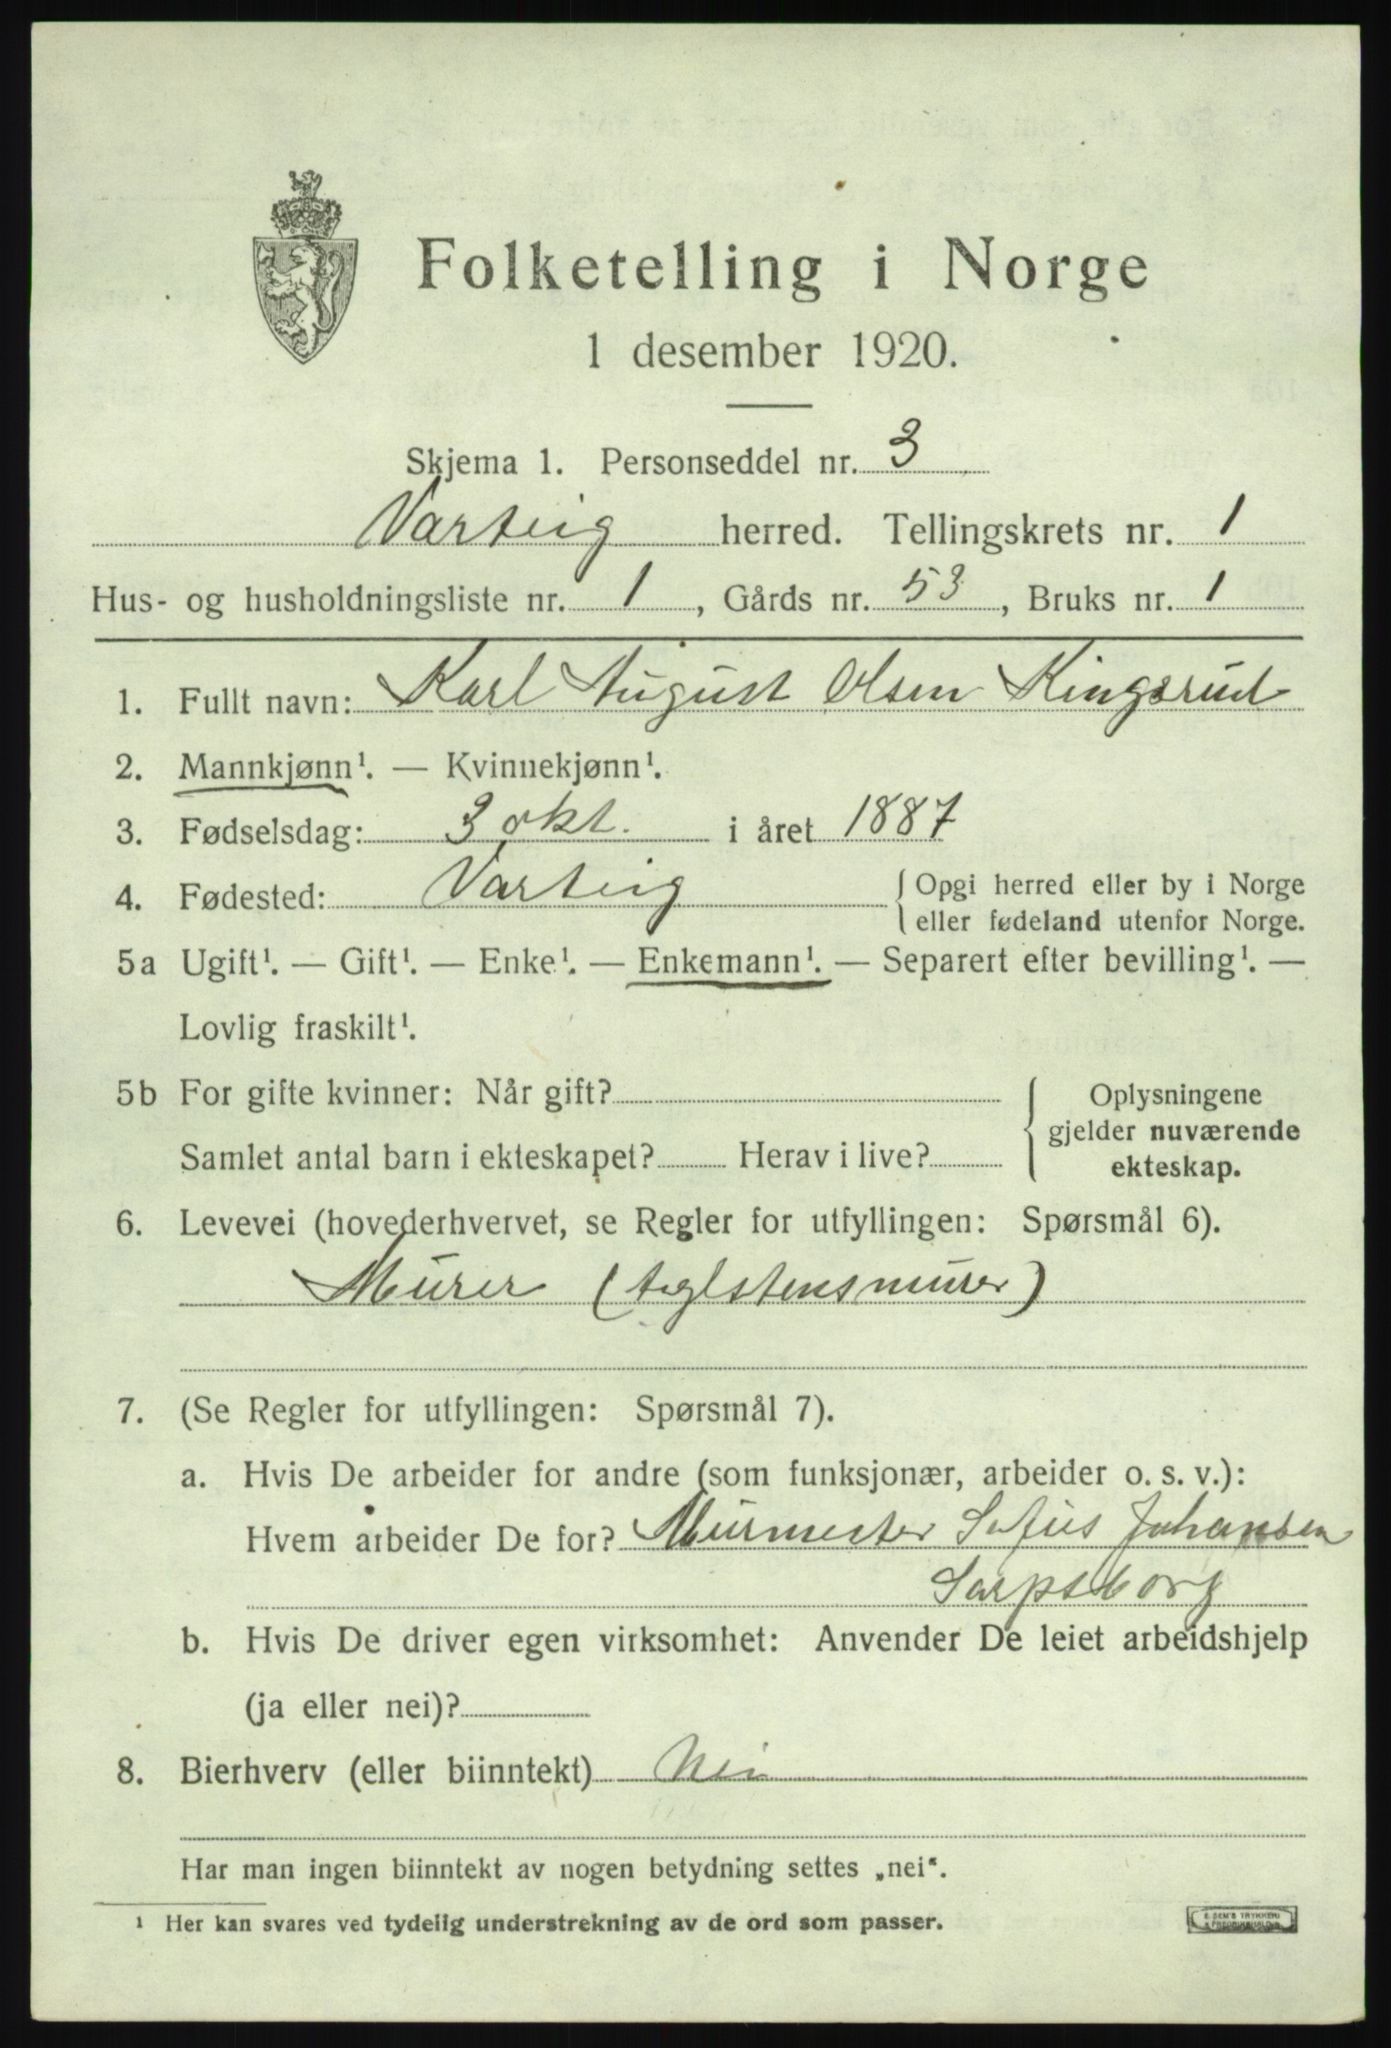 Folketelling i Norge
1 desember 1920.
Skjema 1. Personseddel nr. 3
Varteig herred. Tellingskrets nr. 1
Hus- og husholdningsliste nr. 1, Gårds nr. 53, Bruks nr. 1
1. Fullt navn: Karl August Olsen Kingsrud
2. Mannkjønn¹. — Kvinnekjønn¹.
3. Fødselsdag: 3 okt. i året 1887
4. Fødested: Varteig { Opgi herred eller by i Norge
eller fødeland utenfor Norge.
5a Ugift¹. — Gift¹. — Enke¹. — Enkemann¹. — Separert efter bevilling¹. —
Lovlig fraskilt¹.
5b For gifte kvinner: Når gift? Oplysningene
gjelder nuværende
Samlet antal barn i ekteskapet? Herav i live? ekteskap.
6. Levevei (hovederhvervet, se Regler for utfyllingen: Spørsmål 6).
Murer (teglstensmurer)
7. (Se Regler for utfyllingen: Spørsmål 7).
a. Hvis De arbeider for andre (som funksjonær, arbeider o. s. v.):
Hvem arbeider De for? Murmester Sofus Johansen
Sarpsborg
b. Hvis De driver egen virksomhet: Anvender De leiet arbeidshjelp
(ja eller nei)?
8. Bierhverv (eller biinntekt) Nei
Har man ingen biinntekt av nogen betydning settes „nei“.
¹ Her kan svares ved tydelig understrekning av de ord som passer.
E. SEM'S TRYKKERI
FREDRIKSHALD